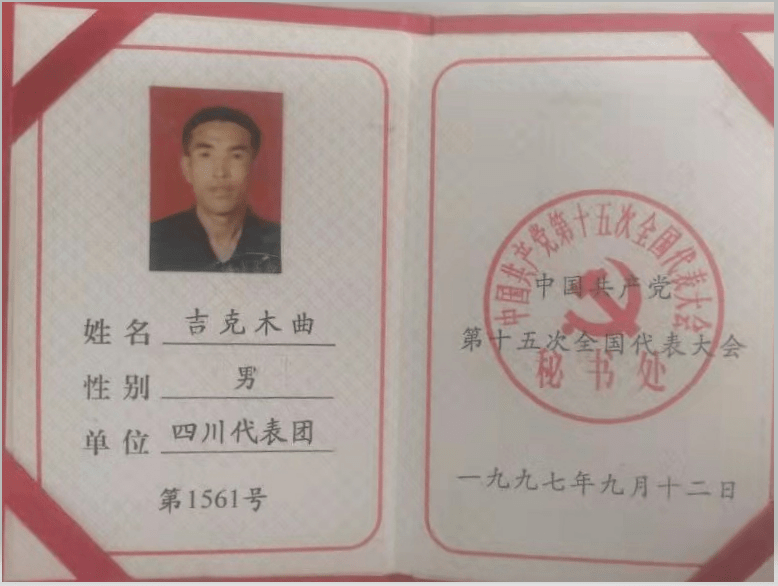 姓名 吉克木曲
性别 男
单位 四川代表团
第1561号
中国共产党第十五次全国代表大会
中国共产党
第十五次全国代表大会
秘书处
一九九七年九月十二日